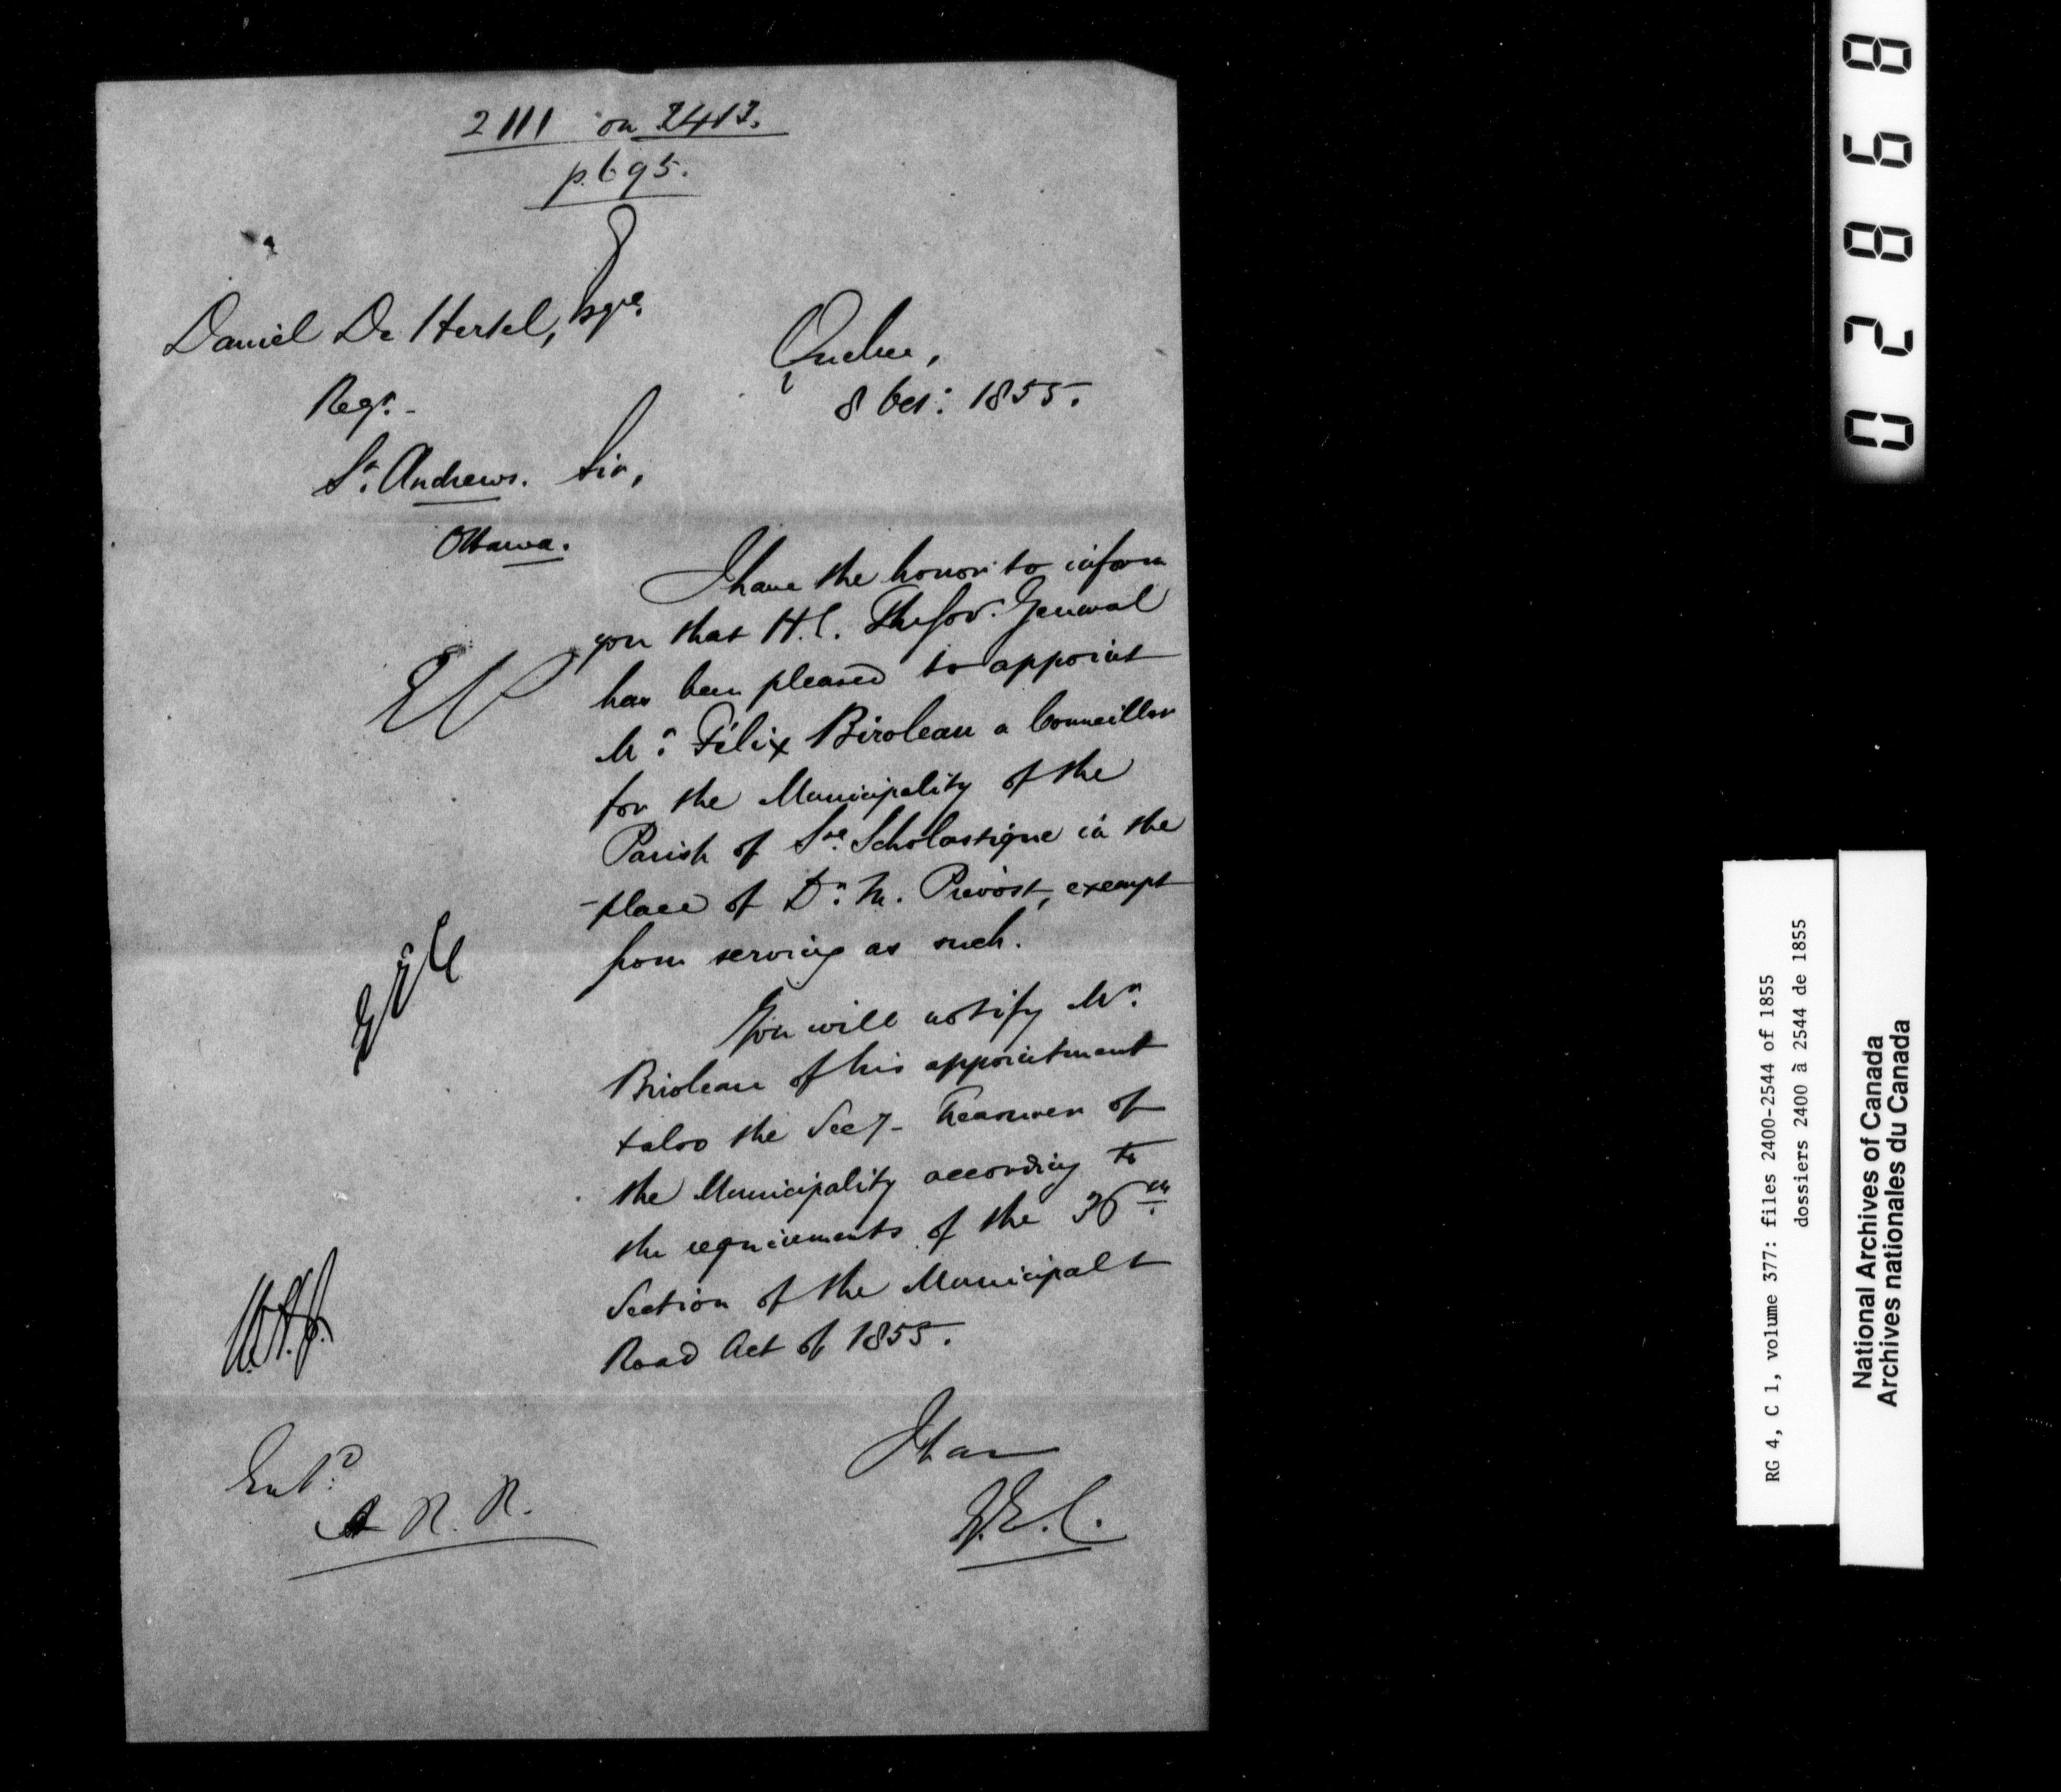 2111 on 2413.
p. 695.
Daniel De Hertel, Esqre.
Regr. -
St. Andrews.
Ottawa.
Quebec,
8 Oct: 1855.
Sir,
I have the honor to inform
you that H.E. The Gov. General
has been pleased to appoint
Mr. Félix Biroleau a Councillor
for the Municipality of the
Parish of Ste. Scholastique in the
place of Dr. M. Prévost, exempt
from serving as such.
You will notify Mr.
Biroleau of his appointment
& also the Secy- Treasurer of
the Municipality according to
the requirements of the 36th
Section of the Municipal &
Road Act of 1855.
I have
G.E.C.
GEC
Entd.
A R. R.
02868
RG 4, C 1, volume 377: files 2400-2544 of 1855
dossiers 2400 à 2544 de 1855
National Archives of Canada
Archives nationales du Canada